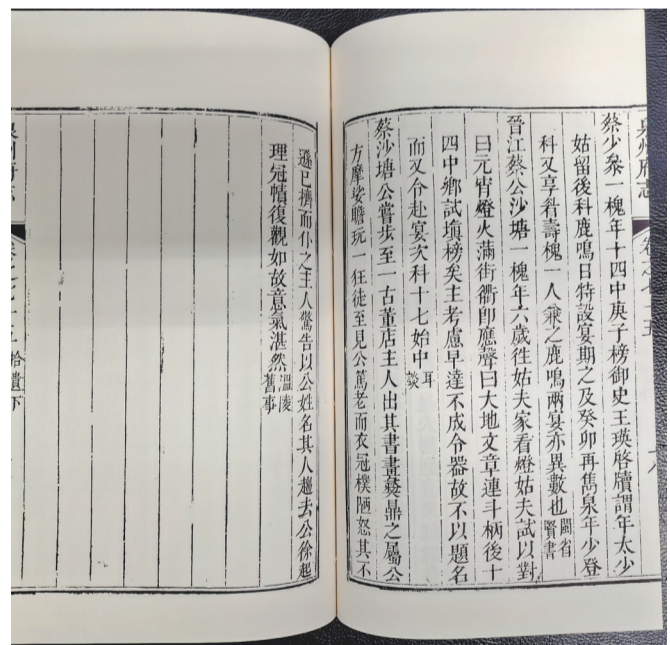 泉州府志
卷之七十五
蔡少叅一槐年十四中庚子榜御史王瑛啓牘謂年太少
姑留後科鹿鳴日特設宴期之及癸卯再雋泉年少登
科又享耆壽槐一人兼之鹿鳴兩宴亦異數也閩省賢書
晉江蔡公沙塘一槐年六歲徃姑夫家看燈姑夫試以對
曰元宵燈火滿街衢卽應聲曰大地文章連斗柄後十
四中鄉試塡榜矣主考慮早達不成令器故不以題名
而又令赴宴次科十七始中耳談
蔡沙塘公嘗步至一古董店主人出其書畫彞鼎之屬公
方摩娑瞻玩一狂徒至見公篤老而衣冠樸陋怒其不
遜已擠而仆之主人驚告以公姓名其人趨去公徐起
理冠幘復觀如故意氣湛然溫陵舊事
泉州府志
卷之七十五 拾遺下